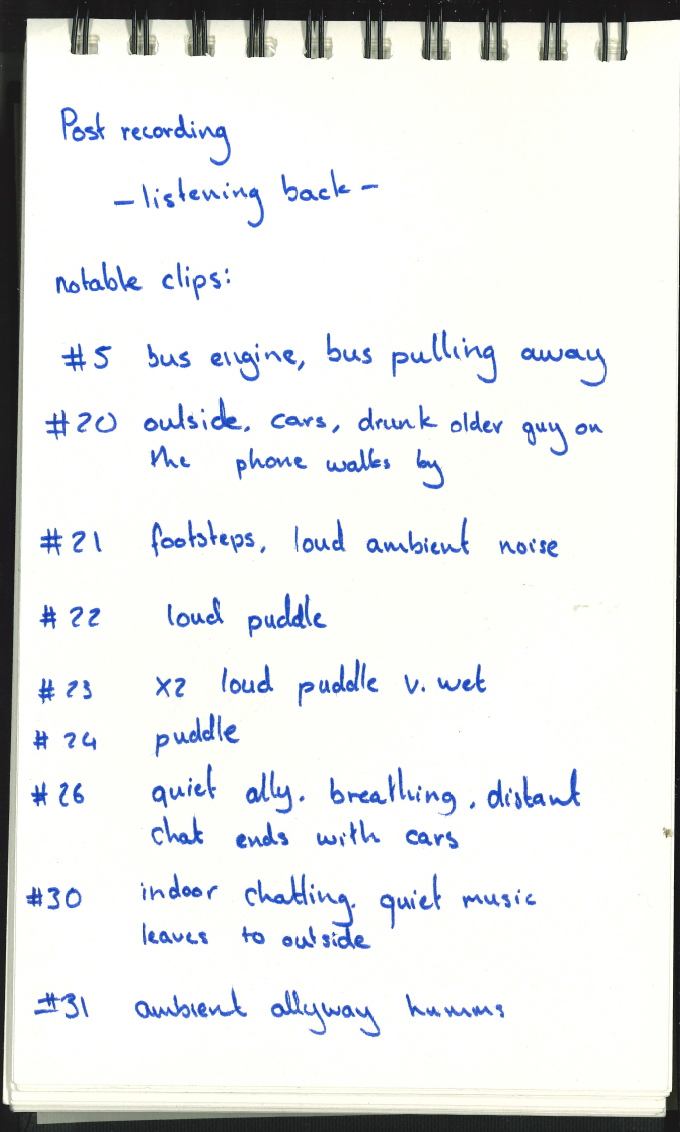 Post recording
- listening back -
notable clips:
#5 bus engine, bus pulling away
#20 outside. cars, drunk older guy on
the phone walks by
#21 footsteps, loud ambient noise
#22 loud puddle
#23 x2 loud puddle v. wet
#24 puddle
#26 quiet ally. breathing, distant
chat ends with cars
#30 indoor chatting. quiet music
leaves to outside
#31 ambient allyway humms